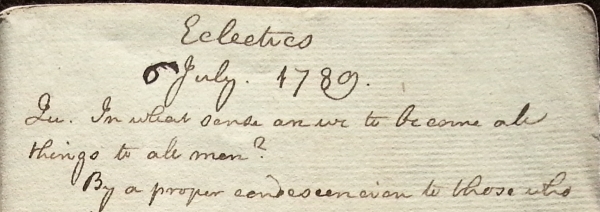 Eclectics
6 July. 1789.
Qu. In what sense are we to become all
things to all men?
By a proper condescension to those who